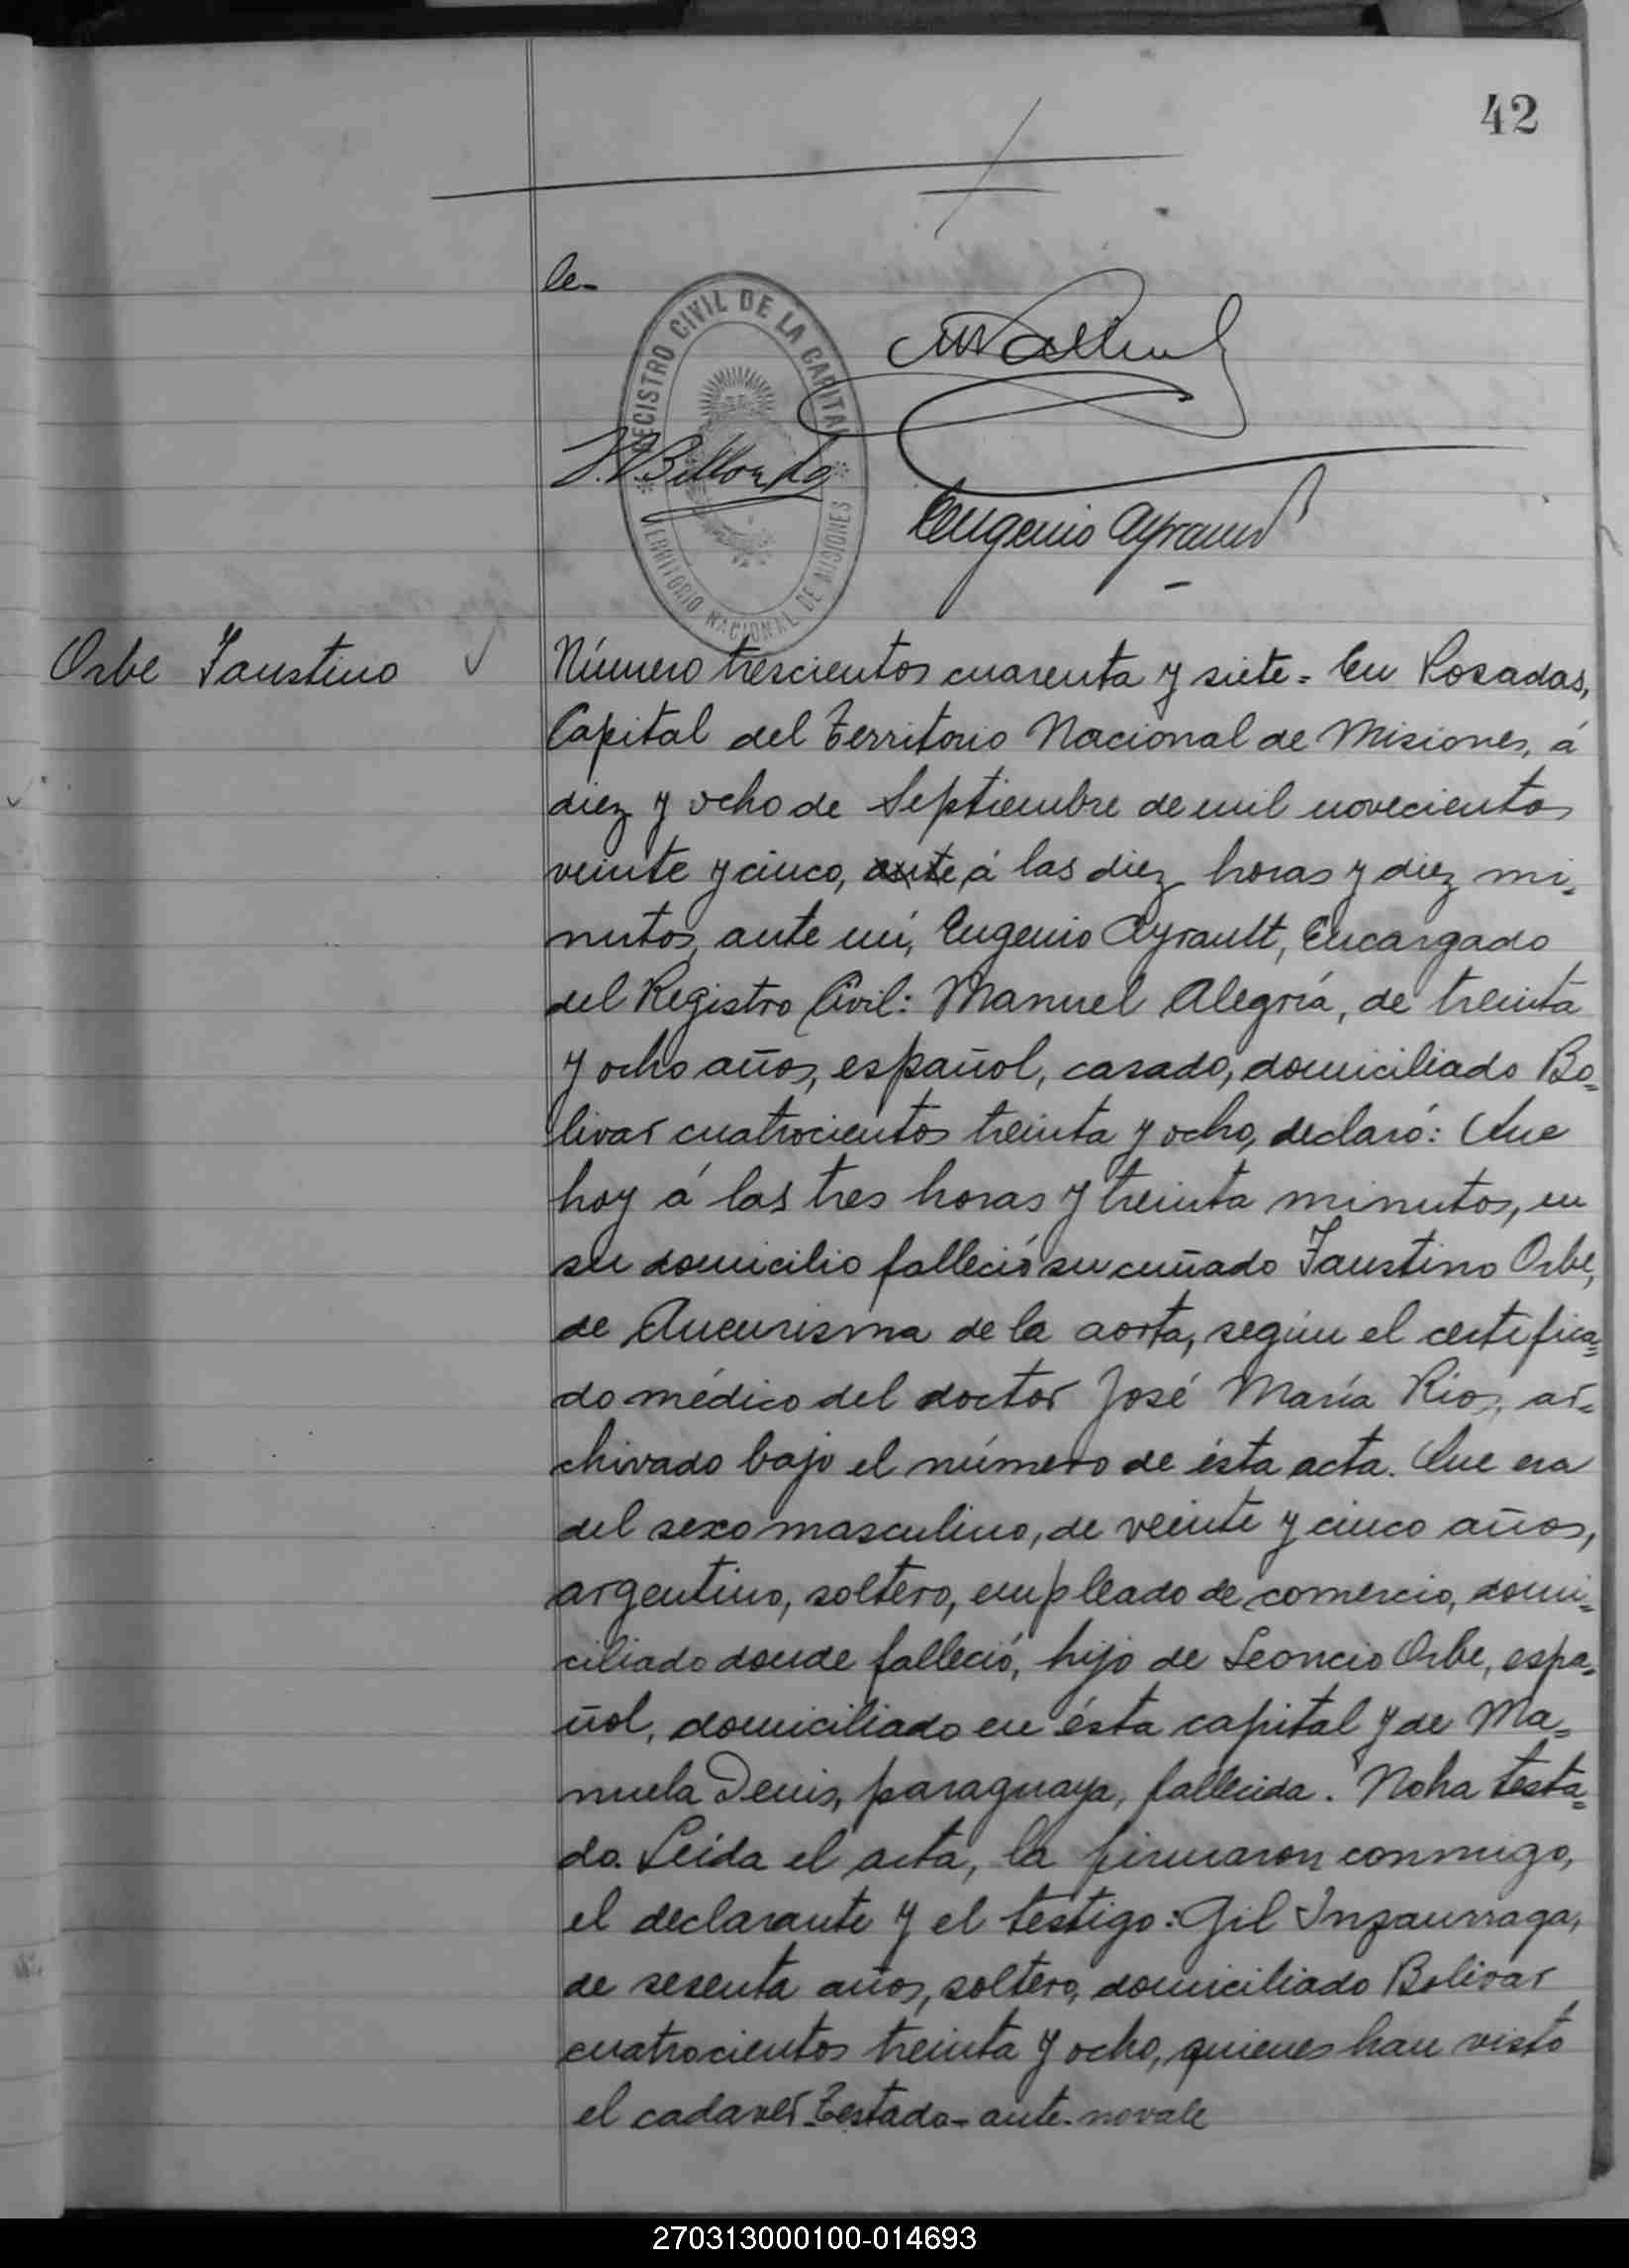 42
le-
REGISTRO CIVIL DE LA CAPITAL
TERRITORIO NACIONAL DE MISIONES
Eugenio Ayrault
Orbe Faustino
Número trescientos cuarenta y siete = En Posadas,
Capital del Territorio Nacional de Misiones, á
diez y ocho de Septiembre de mil novecientos
veinte y cinco, ante á las diez horas y diez mi=
nutos, ante mí, Eugenio Ayrault, Encargado
del Registro Civil: Manuel Alegría, de treinta
y ocho años, español, casado, domiciliado Bo=
livar cuatrocientos treinta y ocho, declaró: Que
hoy á las tres horas y treinta minutos, en
su domicilio falleció su cuñado Faustino Orbe,
de Aneurisma de la aorta, según el certifica=
do médico del doctor José María Rios, ar=
chivado bajo el número de ésta acta. Que era
del sexo masculino, de veinte y cinco años,
argentino, soltero, empleado de comercio, domi=
ciliado donde falleció, hijo de Leoncio Orbe, espa=
ñol, domiciliado en ésta capital y de Ma=
nuela Denis, paraguaya, fallecida. No ha testa=
do. Leída el acta, la firmaron conmigo,
el declarante y el testigo: Gil Inzaurraga,
de sesenta años, soltero, domiciliado Bolivar
cuatrocientos treinta y ocho, quienes han visto
el cadaver. Testado - ante - no vale
270313000100-014693